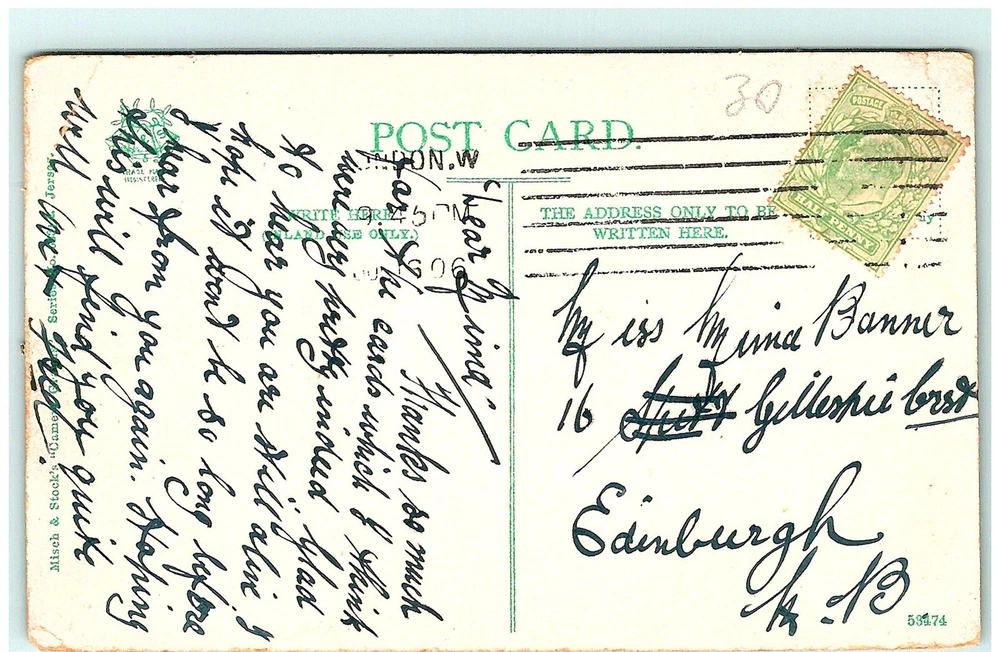 30
POST CARD.
LONDON.W
9.45PM
06
POSTAGE
HALF PENNY
WRITE HERE
(INLAND USE ONLY.)
THE ADDRESS ONLY TO BE
WRITTEN HERE.
TRADE MARK
REGISTERED
Misch & Stock's "Cameo
Series
Jersey
Dear Mina
Thanks so much
for the cards which I think
were very pretty indeed. Glad
to hear you are still alive &
hope it wont be so long before
I hear from you again. Hoping
this will find you quite
well
Miss Mina Banner
16 Gillespie Crst
Edinburgh
N.B
53474